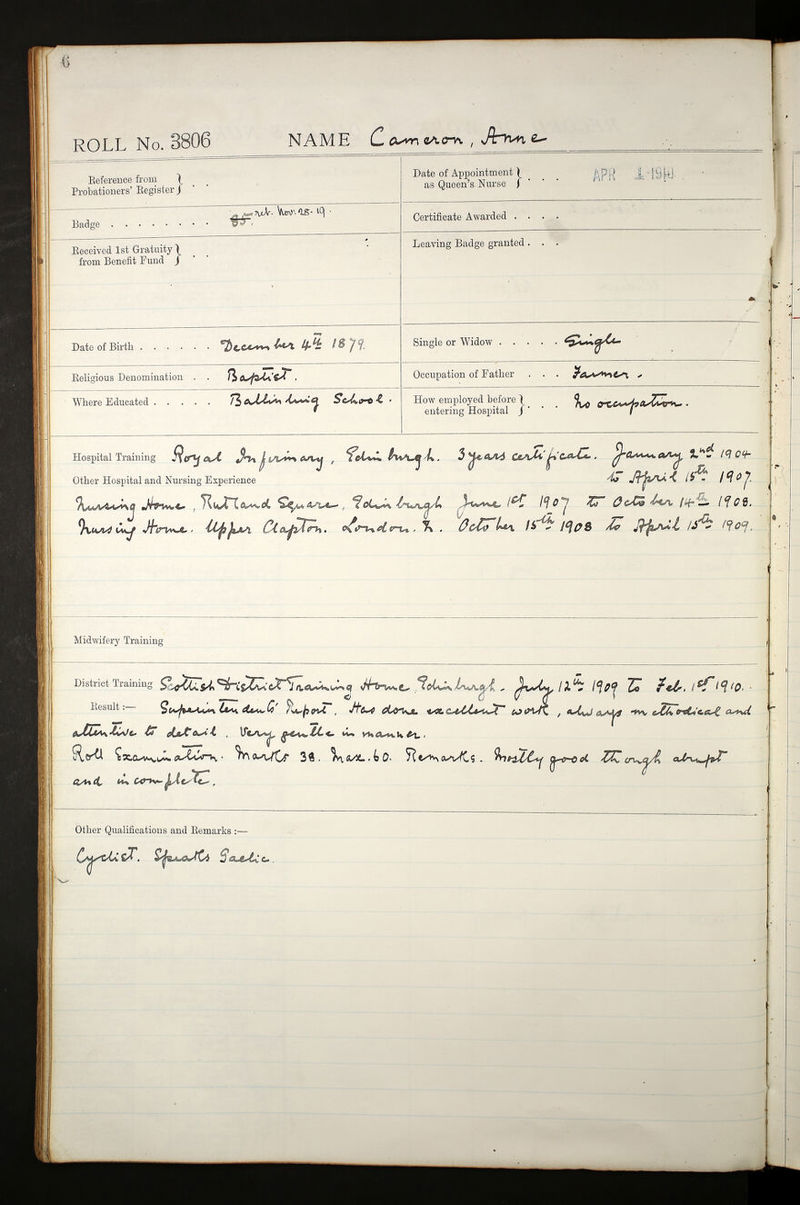 6
ROLL No. 3806 NAME Cameron, Anne
Reference from Probationers' Register } . .
Date of Appointment as Queen's Nurse } . . . APR 1 1910
Badge . . . . . . . . Nov. 25. 19.
Certificate Awarded . . . .
Received 1st Gratuity from Benefit Fund } . .
Leaving Badge granted . . .
Date of Birth . . . . . . December 4th 1879.
Single or Widow . . . . . Single
Religious Denomination . . Baptist.
Occupation of Father . . . Farmer
Where Educated . . . . . School.
How employed before entering Hospital } . . . No occupation.
Hospital Training Royal Infirmary, Edinburgh. 3 years certificate. January 2nd 1904
Other Hospital and Nursing Experience to April 15th 1907.
Nursing Home, Rutland Square, Edinburgh June 1st 1907 to October 14th 1908.
Nursing Home. Upper Clapton. London. N. October 15th 1908 to April 15th 1909.
Midwifery Training
District Training Scottish District Training Home, Edinburgh, July 12th 1909 to Feb. 1st 1910.
Result :— Superintendent's Report. Has done excellent work, always methodical and
attentive to detail. Very gentle in manner.
Roll Examination. Marks 38. Max. 60. Remarks. Mostly good though abrupt
and incomplete.
Other Qualifications and Remarks :—
Cyclist. Speaks Gaelic.